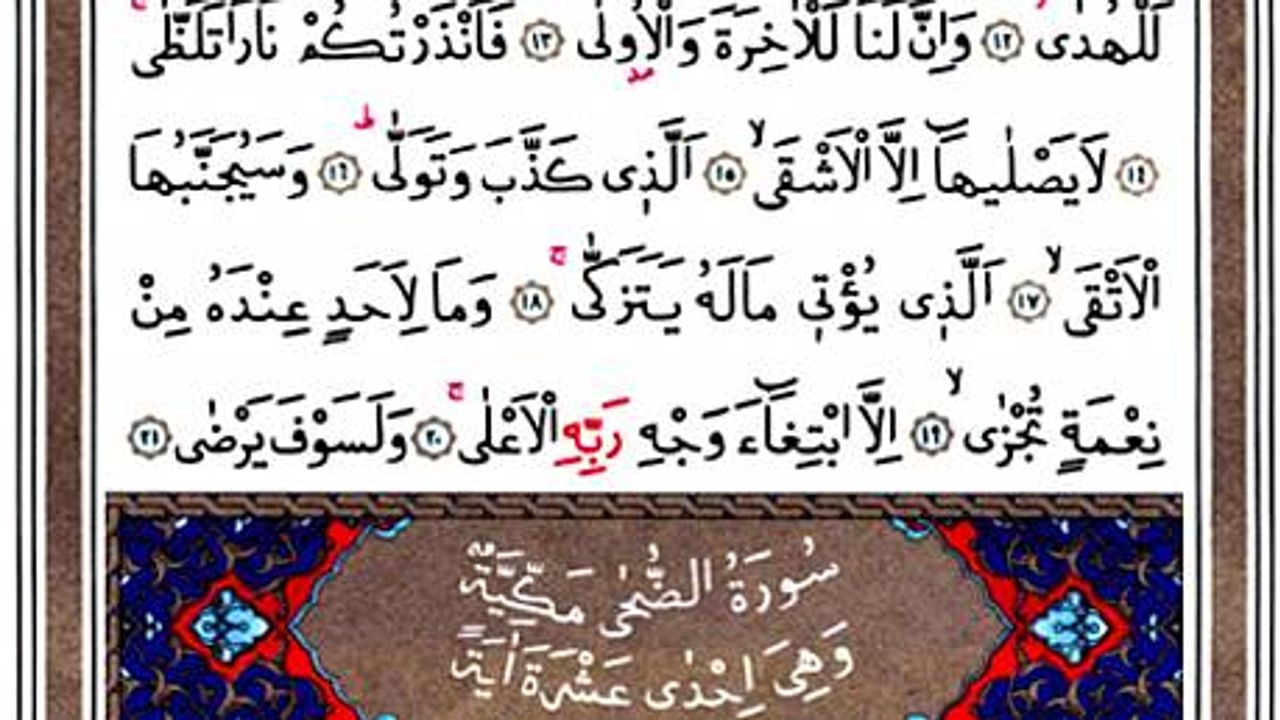 لَلْهُدٰى ﴿١٢﴾ وَاِنَّ لَنَا لَلْاٰخِرَةَ وَالْاُو۫لٰى ﴿١٣﴾ فَاَنْذَرْتُكُمْ نَارًا تَلَظّٰى
﴿١٤﴾ لَا يَصْلٰيهَٓا اِلَّا الْاَشْقَىۙ ﴿١٥﴾ اَلَّذ۪ى كَذَّبَ وَتَوَلّٰىۜ ﴿١٦﴾ وَسَيُجَنَّبُهَا
الْاَتْقَىۙ ﴿١٧﴾ اَلَّذ۪ى يُؤْت۪ى مَالَهُ يَتَزَكّٰىۚ ﴿١٨﴾ وَمَا لِاَحَدٍ عِنْدَهُ مِنْ
نِعْمَةٍ تُجْزٰىۙ ﴿١٩﴾ اِلَّا ابْتِغَٓاءَ وَجْهِ رَبِّهِ الْاَعْلٰىۚ ﴿٢٠﴾ وَلَسَوْفَ يَرْضٰى ﴿٢١﴾
سُورَةُ الضُّحٰى مَكِّيَّةٌ
وَهِىَ اِحْدٰى عَشْرَةَ اٰيَةً